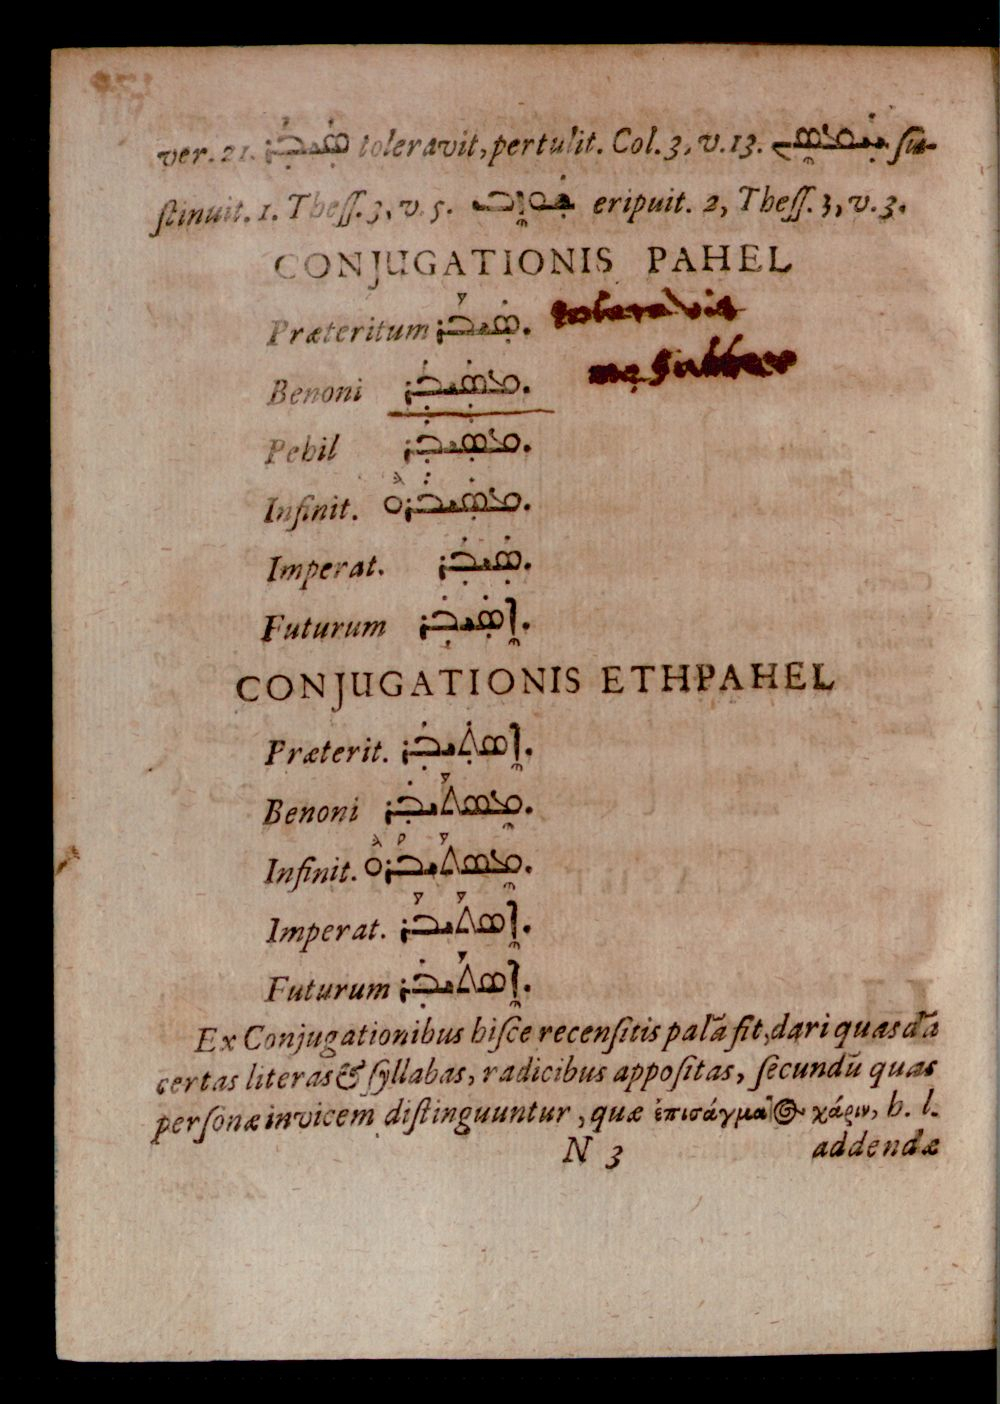 ver. 21. ܣܝܒܪ toleravit, pertulit. Col. 3, v. 13. ſu-
ſtinuit. 1. Theſſ. 3, v. 5. eripuit. 2, Theſſ. 3, v. 3.
CONJUGATIONIS PAHEL
Præteritum ܣܝܒܪ. toleravit
Benoni ܡܣܝܒܪ.
Pehil ܡܣܝܒܪ.
Infinit. ܡܣܝܒܪܘ.
Imperat. ܣܝܒܪ.
Futurum ܐܣܝܒܪ.
CONJUGATIONIS ETHPAHEL
Præterit. ܐܣܬܝܒܪ.
Benoni ܡܣܬܝܒܪ.
Infinit. ܡܣܬܝܒܪܘ.
Imperat. ܐܣܬܝܒܪ.
Futurum ܐܣܬܝܒܪ.
Ex Conjugationibus hiſce recenſitis palā fit, dari quasdā
certas literas & ſyllabas, radicibus appoſitas, ſecundū quas
perſonæ invicem diſtinguuntur, quæ ἐπισάγμαϊος χάριν, h. l.
N 3 addendæ